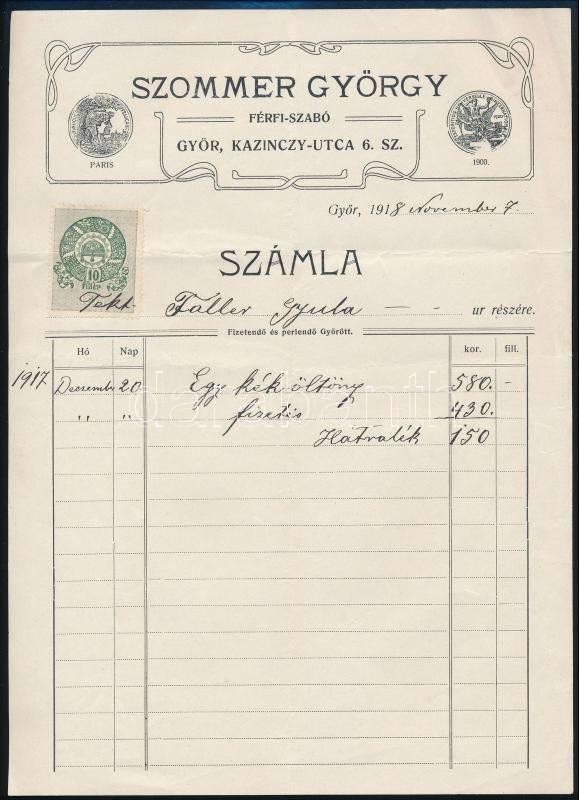 SZOMMER GYÖRGY
FÉRFI-SZABÓ
GYŐR, KAZINCZY-UTCA 6. SZ.
PARIS
1900.
Győr, 1918 November 7
SZÁMLA
10
fillér
Tekt. Faller Gyula — — ur részére.
Fizetendő és perlendő Győrött.
Hó Nap kor. fill.
1917. Decsember 20 Egy kék öltöny 580. -
,, ,, fizetés 430.
Hátralék 150
darabanth